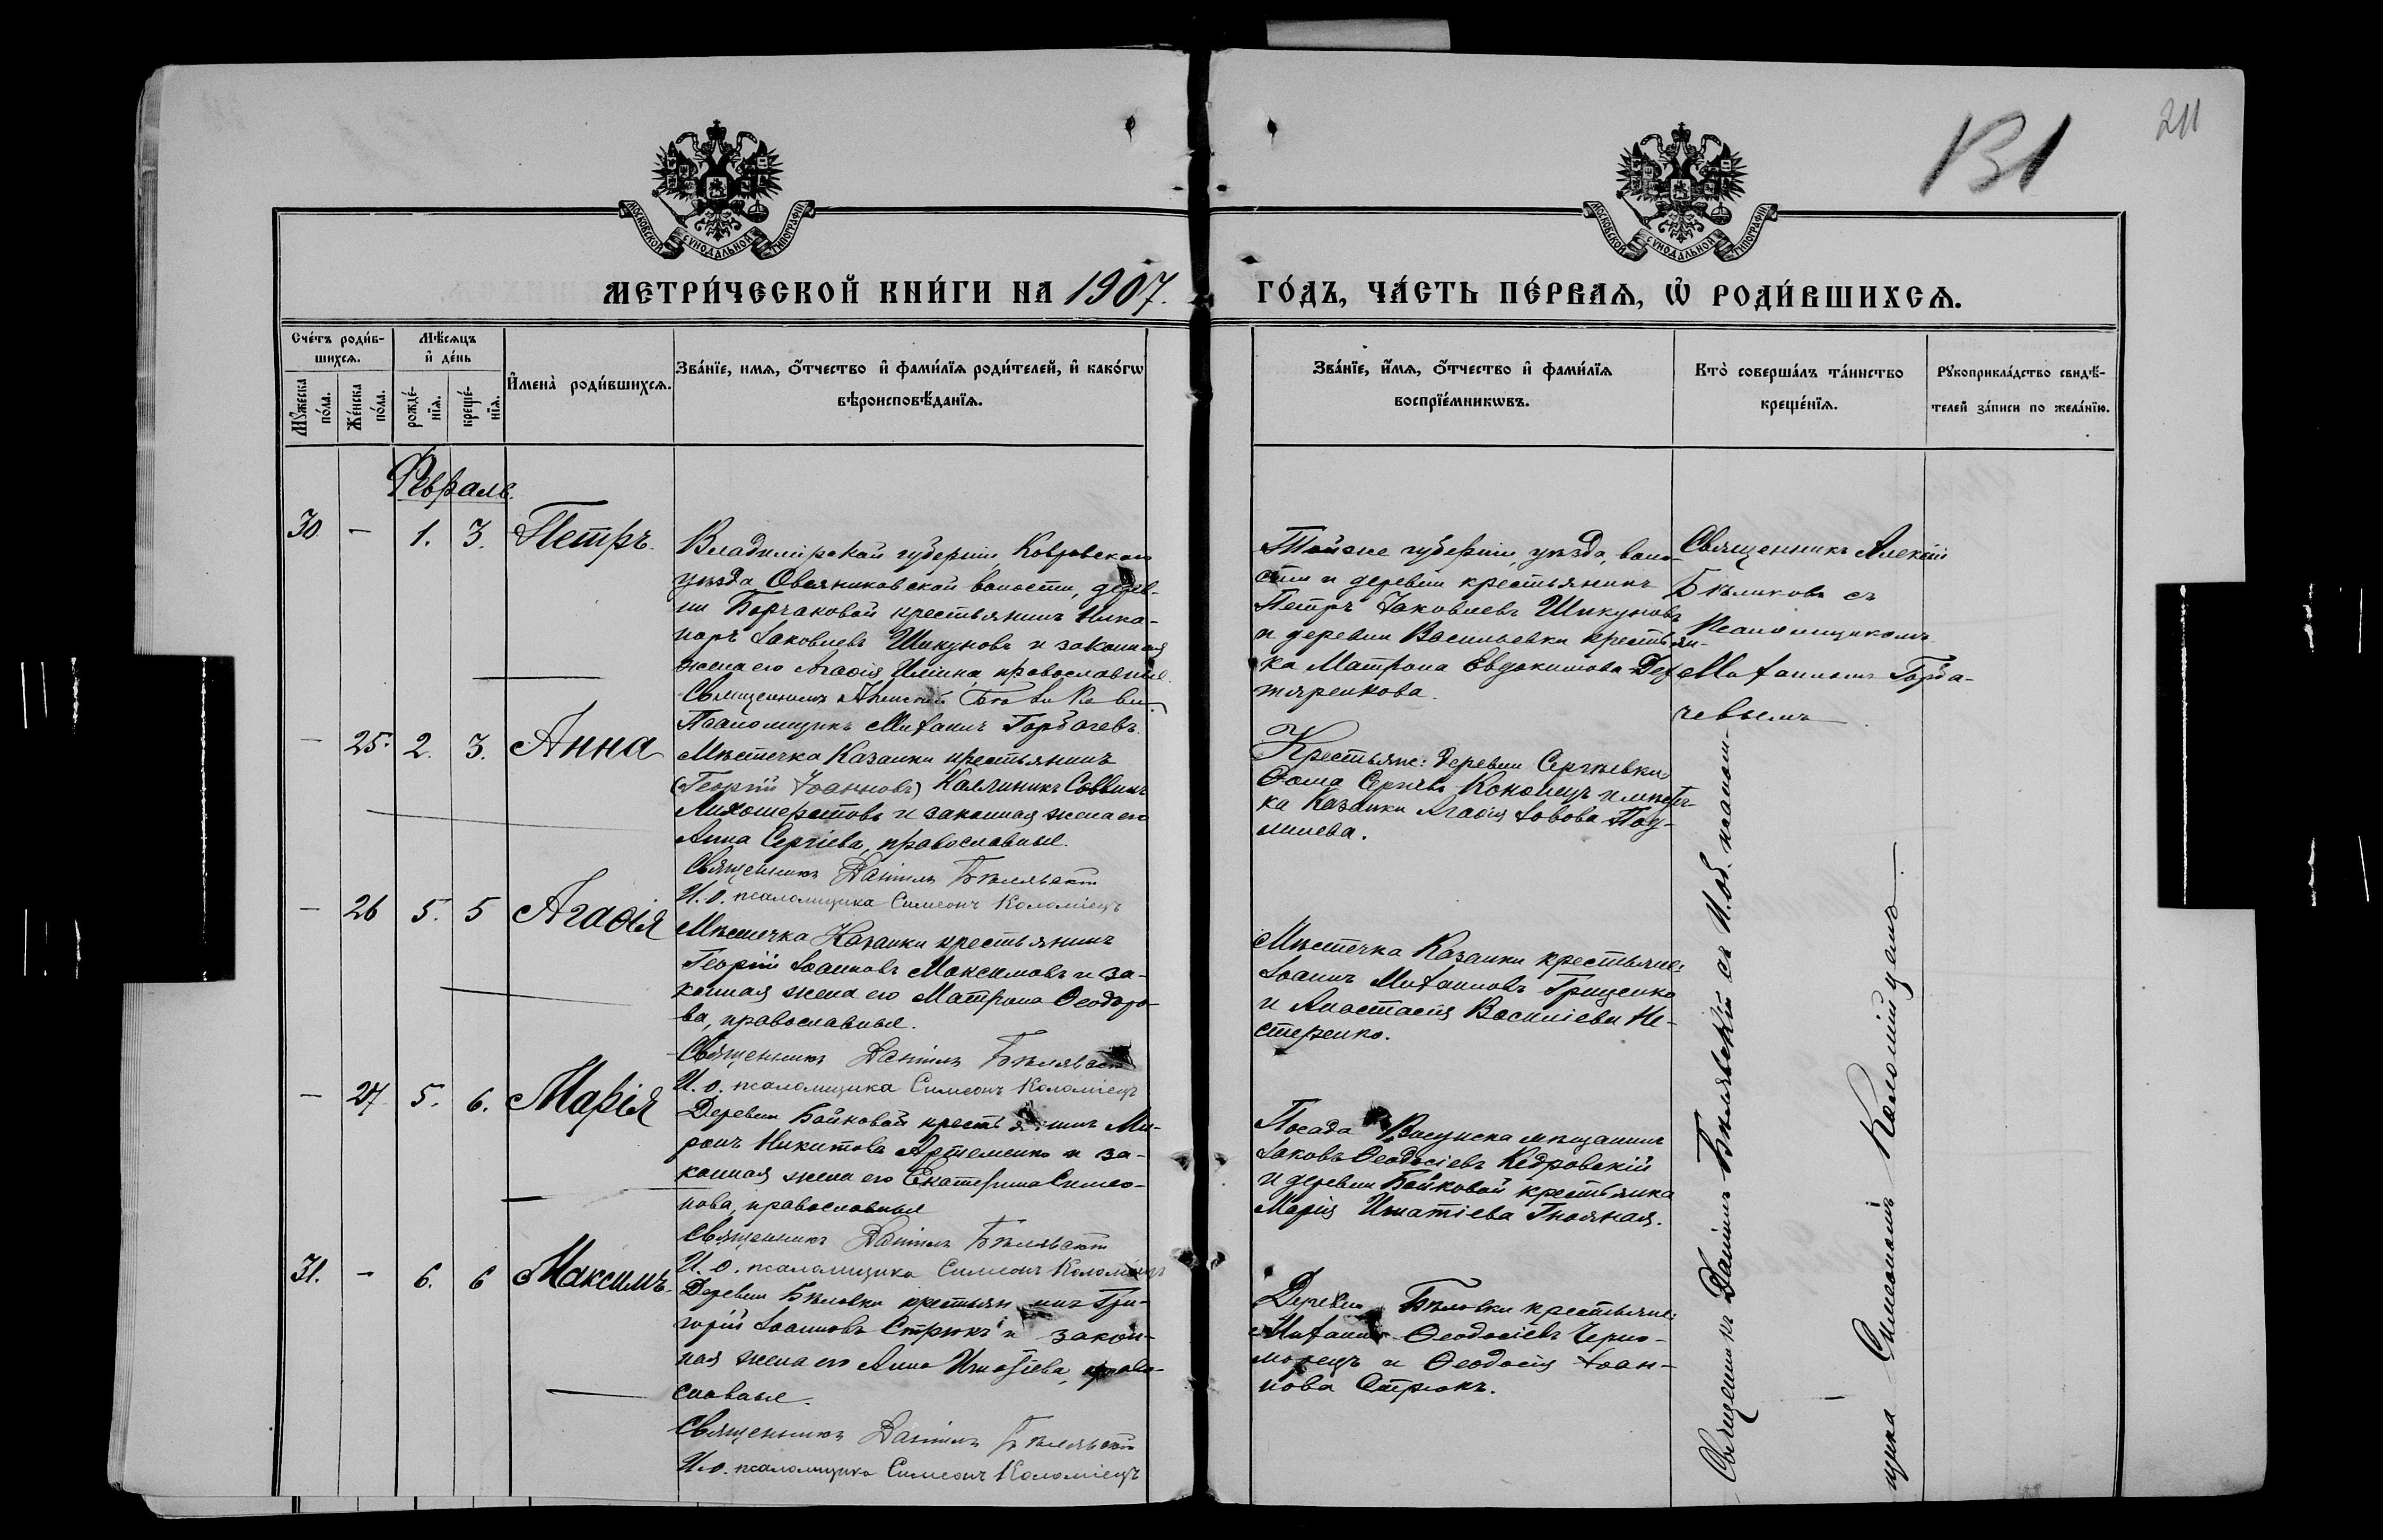 131
211
МОСКОВСКОЙ СѴНОДАЛЬНОЙ ТИПОГРАФІИ
МОСКОВСКОЙ СѴНОДАЛЬНОЙ ТИПОГРАФІИ
МЕТРИ́ЧЕСКОЙ КНИ́ГИ НА 1907. ГО́ДЪ, ЧА́СТЬ ПЕ́РВАѦ, Ѡ҆ РОДИ́ВШИХСѦ.
Сче́тъ роди́в-
шихсѧ.
Мꙋ́жеска
по́ла.
Же́нска
по́ла.
Мѣ́сѧцъ
и҆ де́нь
рожде́-
нїѧ.
креще́-
нїѧ.
И҆мена̀ роди́вшихсѧ.
Зва́нїе, имѧ, ѻ҆́тчество и҆ фами́лїѧ роди́телей, и҆ како́гѡ
вѣроисповѣ́данїѧ.
Зва́нїе, и҆́мѧ, ѻ҆́тчество и҆ фами́лїѧ
воспрїе́мникѡвъ.
Кто̀ соверша́лъ та́инство
креще́нїѧ.
Рꙋкоприкла́дство свидѣ́-
телей за́писи по жела́нїю.
Февраль.
30 — 1. 3. Петръ.
Владимірской губерніи, Ковровскаго
уѣзда Овсяниковской волости, дерев-
ни Борчаковой крестьянинъ Ника-
норъ Іаковлевъ Шикуновъ и законная
жена его Агаѳія Иліина, православные.
Священникъ Алексій
Псаломщикъ Митѳанъ Горбачевъ.
Тойже губерніи, уѣзда, воло-
сти и деревни крестьянинъ
Петръ Іаковлевъ Шикуновъ
и деревни Васильевки крестьян-
ка Матрона Евдокимова Дех-
тяренкова.
Священникъ Алексій
Бѣликовъ съ
Псаломщикомъ
Горба-
чевымъ
— 25. 2. 3. Анна
Мѣстечка Казанки крестьянинъ
(Георгій Іоанновъ) Каллиникъ Саввинъ
Лихошерстовъ и законная жена его
Анна Сергіева, православные.
Священникъ Даніилъ Бѣлявскій
И. о. псаломщика Симеонъ Коломіецъ
Крестьяне: деревни Сергѣевки
Ѳома Сергіевъ Кононецъ и мѣстеч-
ка Казанки Агаѳія
— 26 5. 5 Агаѳія
Мѣстечка Казанки крестьянинъ
Георгій Іоанновъ Максимовъ и за-
конная жена его Матрона Ѳеодоро-
ва, православные.
Священникъ Даніилъ Бѣлявскій
И. о. псаломщика Симеонъ Коломіецъ
Мѣстечка Казанки крестьяне:
Іоаннъ Гриценко
и Анастасія Василіева Не-
стеренко.
— 27 5. 6. Марія
Деревни Бойковой крестьянинъ Ми-
ронъ Никитовъ Артеменко и за-
конная жена его Екатерина Симео-
нова, православные
Священникъ Даніилъ Бѣлявскій
И. о. псаломщика Симеонъ Коломіецъ
Посада мѣщанинъ
Іаковъ Ѳеодосіевъ Кедровскій
и деревни Бойковой крестьянка
Марія Игнатіева Гнояная.
31. — 6. 6 Максимъ.
Деревни Бѣловки крестьянинъ Гри-
горій Іоанновъ Стрюкъ и закон-
ная жена его Анна Игнатіева, право-
славные.
Священникъ Даніилъ Бѣлявскій
И. о. псаломщика Симеонъ Коломіецъ
Деревни Бѣловки крестьяне:
Ѳеодосіевъ Черно-
морецъ и Ѳеодосія Іоан-
нова Стрюкъ.
Священникъ Даніилъ Бѣлявскій съ И. об. псалом-
щика Симеономъ Коломійцемъ